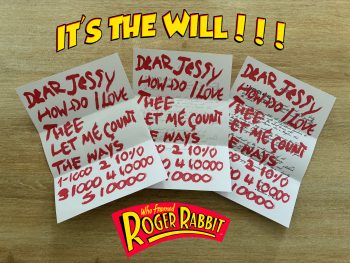 IT'S THE WILL!!!
DEAR JESSY
HOW DO I LOVE
THEE
LET ME COUNT
THE WAYS
1-1000 2 10%
3 1000 4 10000
5 10000
DEAR JESSY
HOW-DO I LOVE
THEE
LET ME COUNT
THE WAYS
1000 2 10%
1000 4 10000
5 10000
DEAR JESSY
HOW-DO I LOVE
THEE
LET ME COUNT
THE WAYS
1000 2 10%
1000 4 10000
5 10000
Who Framed
ROGER RABBIT